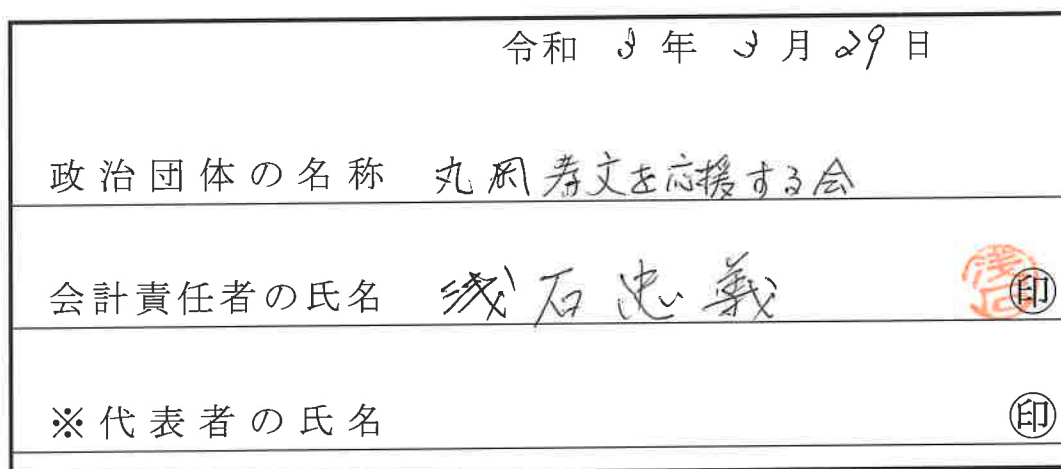 令和 3 年 3 月 29 日
政治団体の名称 丸岡寿文を応援する会
会計責任者の氏名 浅石忠義 浅石 ㊞
※代表者の氏名 ㊞